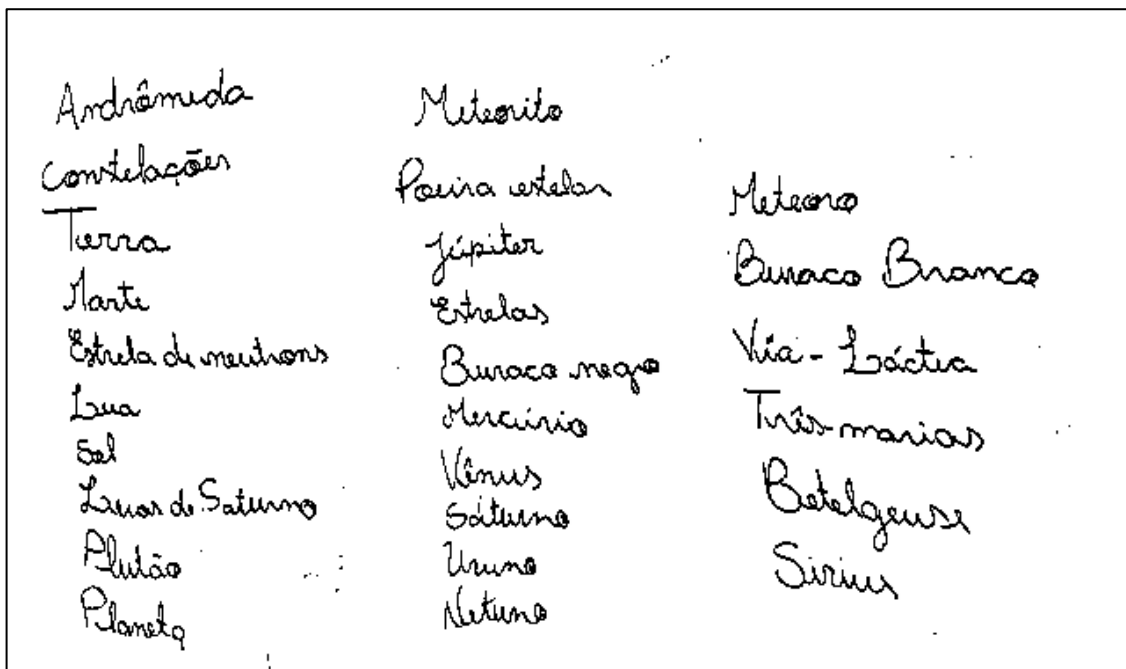 Andrômeda
Constelações
Terra
Marte
Estrela de neutrons
Lua
Sol
Luas de Saturno
Plutão
Planeta
Meteorito
Poeira estelar
Júpiter
Estrelas
Buraco negro
Mercúrio
Vênus
Sáturno
Uruno
Netuno
Meteoro
Buraco Branco
Via-Láctea
Três-marias
Betelgeuse
Sirius